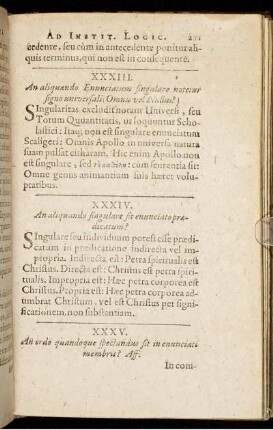 AD INSTIT. LOGIC.
cedente, seu cùm in antecedente ponitur ali-
quis terminus, qui non est in consequente.
XXXIII.
An aliquando Enunciatum singulare notetur
signo universali, Omnis vel Nullus?
Singularitas excludit notam Universi, seu
Totum Quantitatis, ut loquuntur Scho-
lastici: Itaq; non est singulare enunciatum
Scaligeri: Omnis Apollo in universa natura
suam pulsat citharam. Hic enim Apollo non
est singulare, sed cum sententia sit:
Omne genus animantium suis hæret vo-
luptatibus.
XXXIV.
An aliquando singulare sit enunciato præ-
dicatum?
Singulare seu individuum potest esse prædi-
catum in prædicatione indirecta vel im-
propria. Indirecta est: Petra spiritualis est
Christus. Directa est: Christus est petra spiri-
tualis. Impropria est: Hæc petra corporea est
Christus. Propria est: Hæc petra corporea ad-
umbrat Christum, vel est Christus per signi-
ficationem, non substantiam.
XXXV.
An ordo quandoque spectandus sit in enunciati
membris? Aff:
In com-